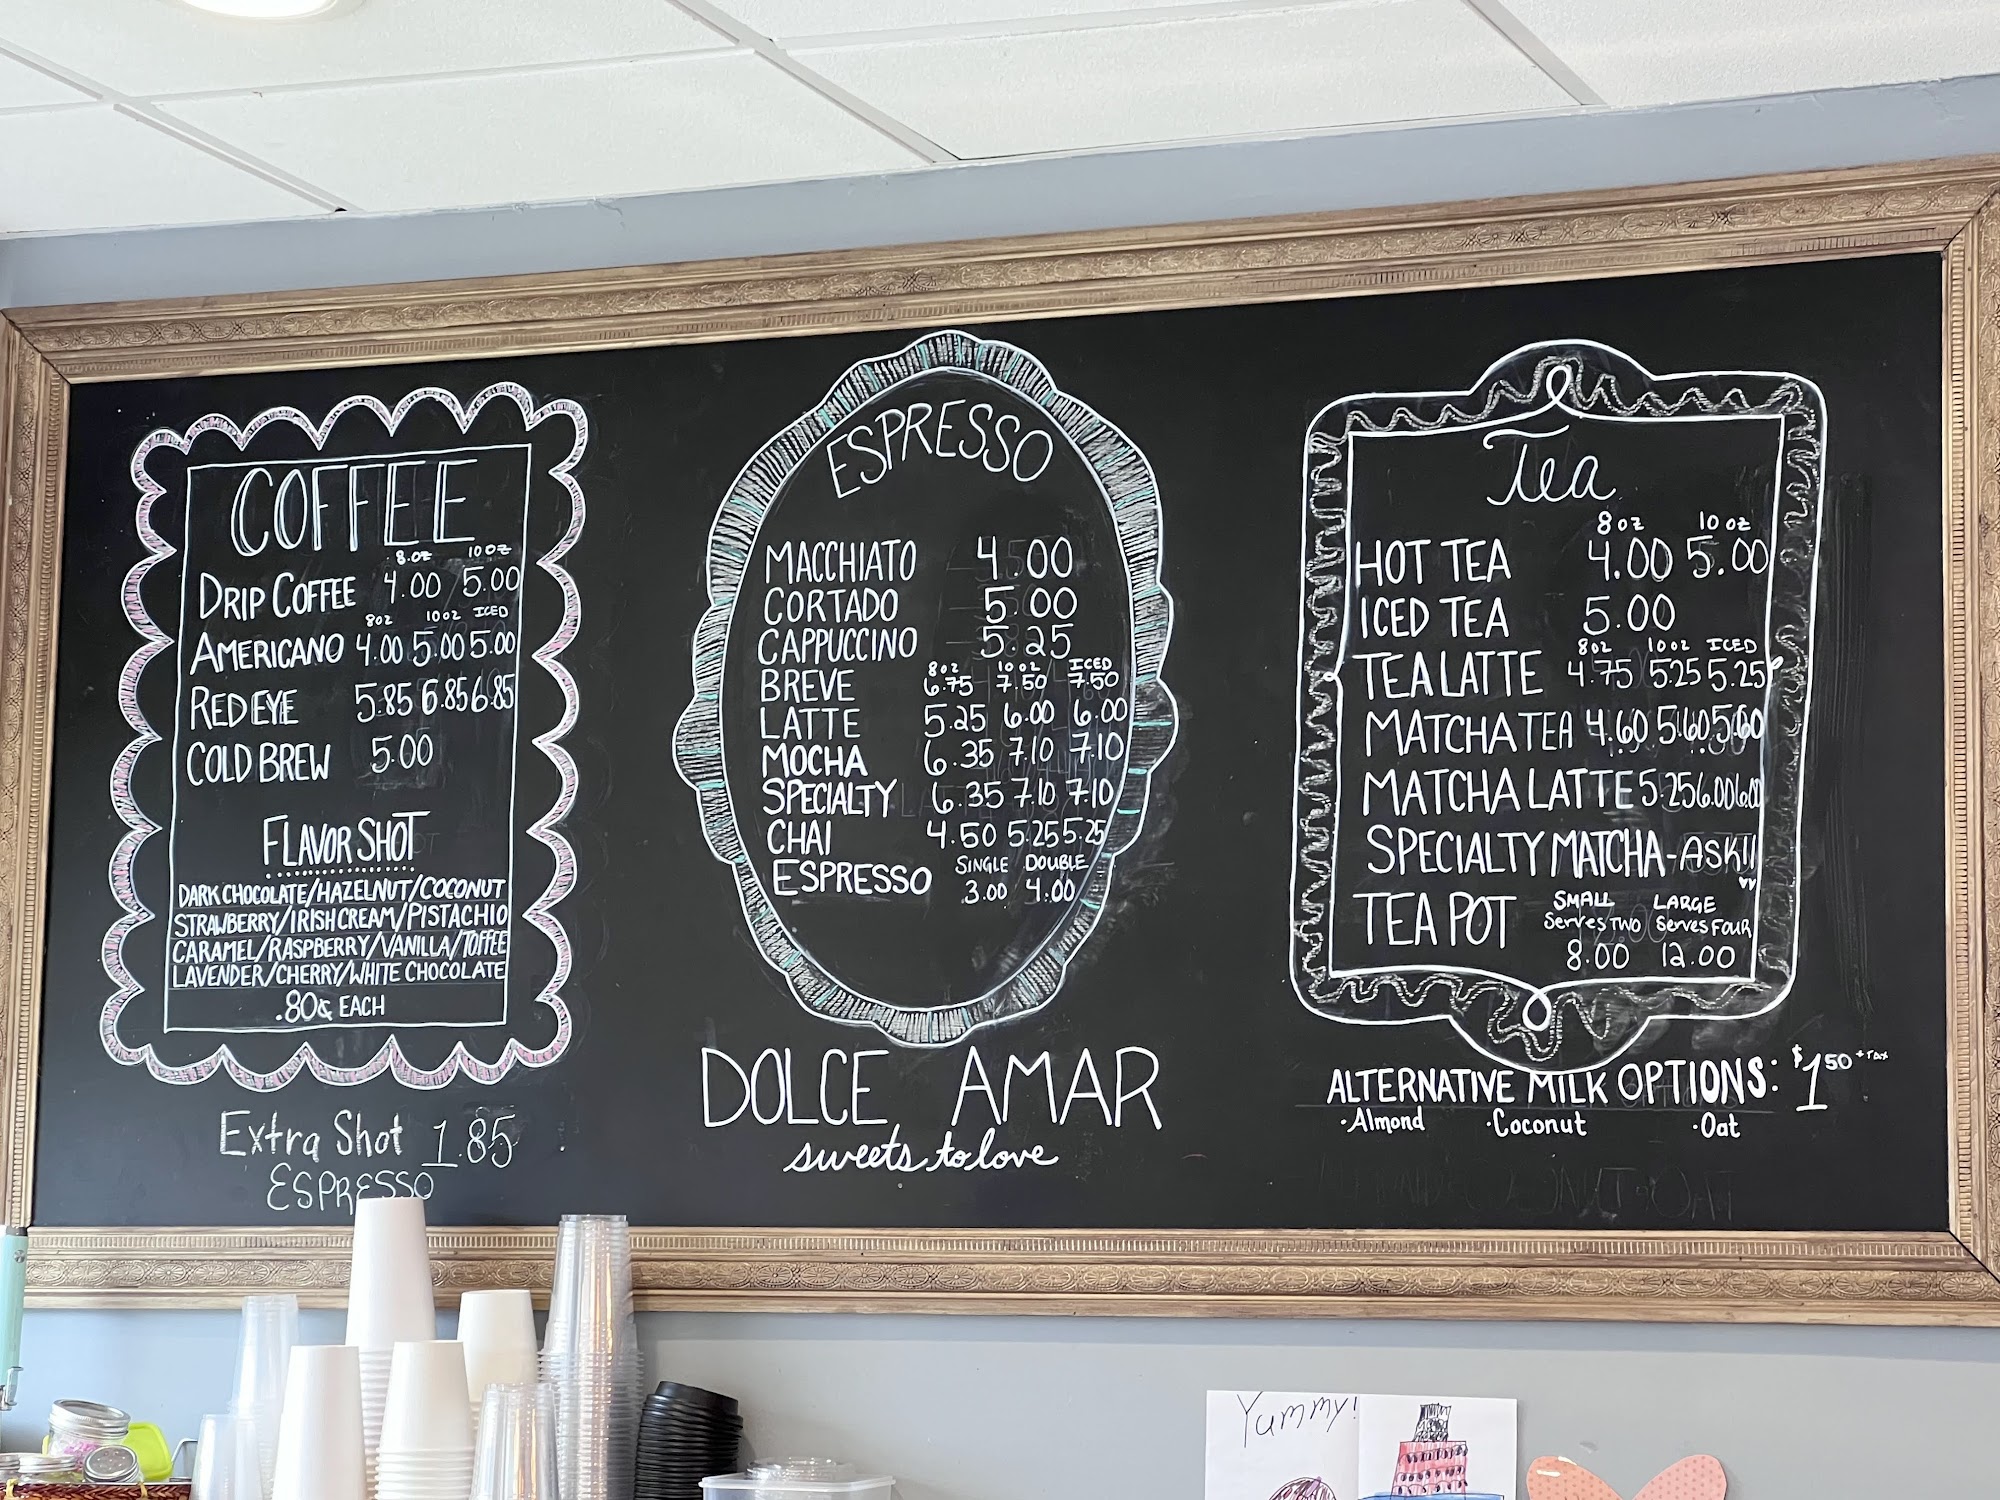 COFFEE
8.oz 10 oz
DRIP COFFEE 4.00 5.00
8oz 10oz ICED
AMERICANO 4.00 5.00 5.00
RED EYE 5.85 6.85 6.85
COLD BREW 5.00
FLAVOR SHOT
DARK CHOCOLATE/HAZELNUT/COCONUT
STRAWBERRY/IRISH CREAM/PISTACHIO
CARAMEL/RASPBERRY/VANILLA/TOFFEE
LAVENDER/CHERRY/WHITE CHOCOLATE
.80¢ EACH
Extra Shot 1.85
ESPRESSO
ESPRESSO
MACCHIATO 4.00
CORTADO 5.00
CAPPUCCINO 5.25
8oz 10oz ICED
BREVE 6.75 7.50 7.50
LATTE 5.25 6.00 6.00
MOCHA 6.35 7.10 7.10
SPECIALTY 6.35 7.10 7.10
CHAI 4.50 5.25 5.25
SINGLE DOUBLE
ESPRESSO 3.00 4.00
DOLCE AMAR
sweets to love
Tea
8oz 10 oz
HOT TEA 4.00 5.00
ICED TEA 5.00
8oz 10oz ICED
TEA LATTE 4.75 5.25 5.25
MATCHA TEA 4.60 5.60 5.60
MATCHA LATTE 5.25 6.00 6.00
SPECIALTY MATCHA - ASK!!
SMALL LARGE
TEA POT Serves TWO Serves FOUR
8.00 12.00
ALTERNATIVE MILK OPTIONS: $1 50 + Tax
·Almond ·Coconut ·Oat
Yummy!